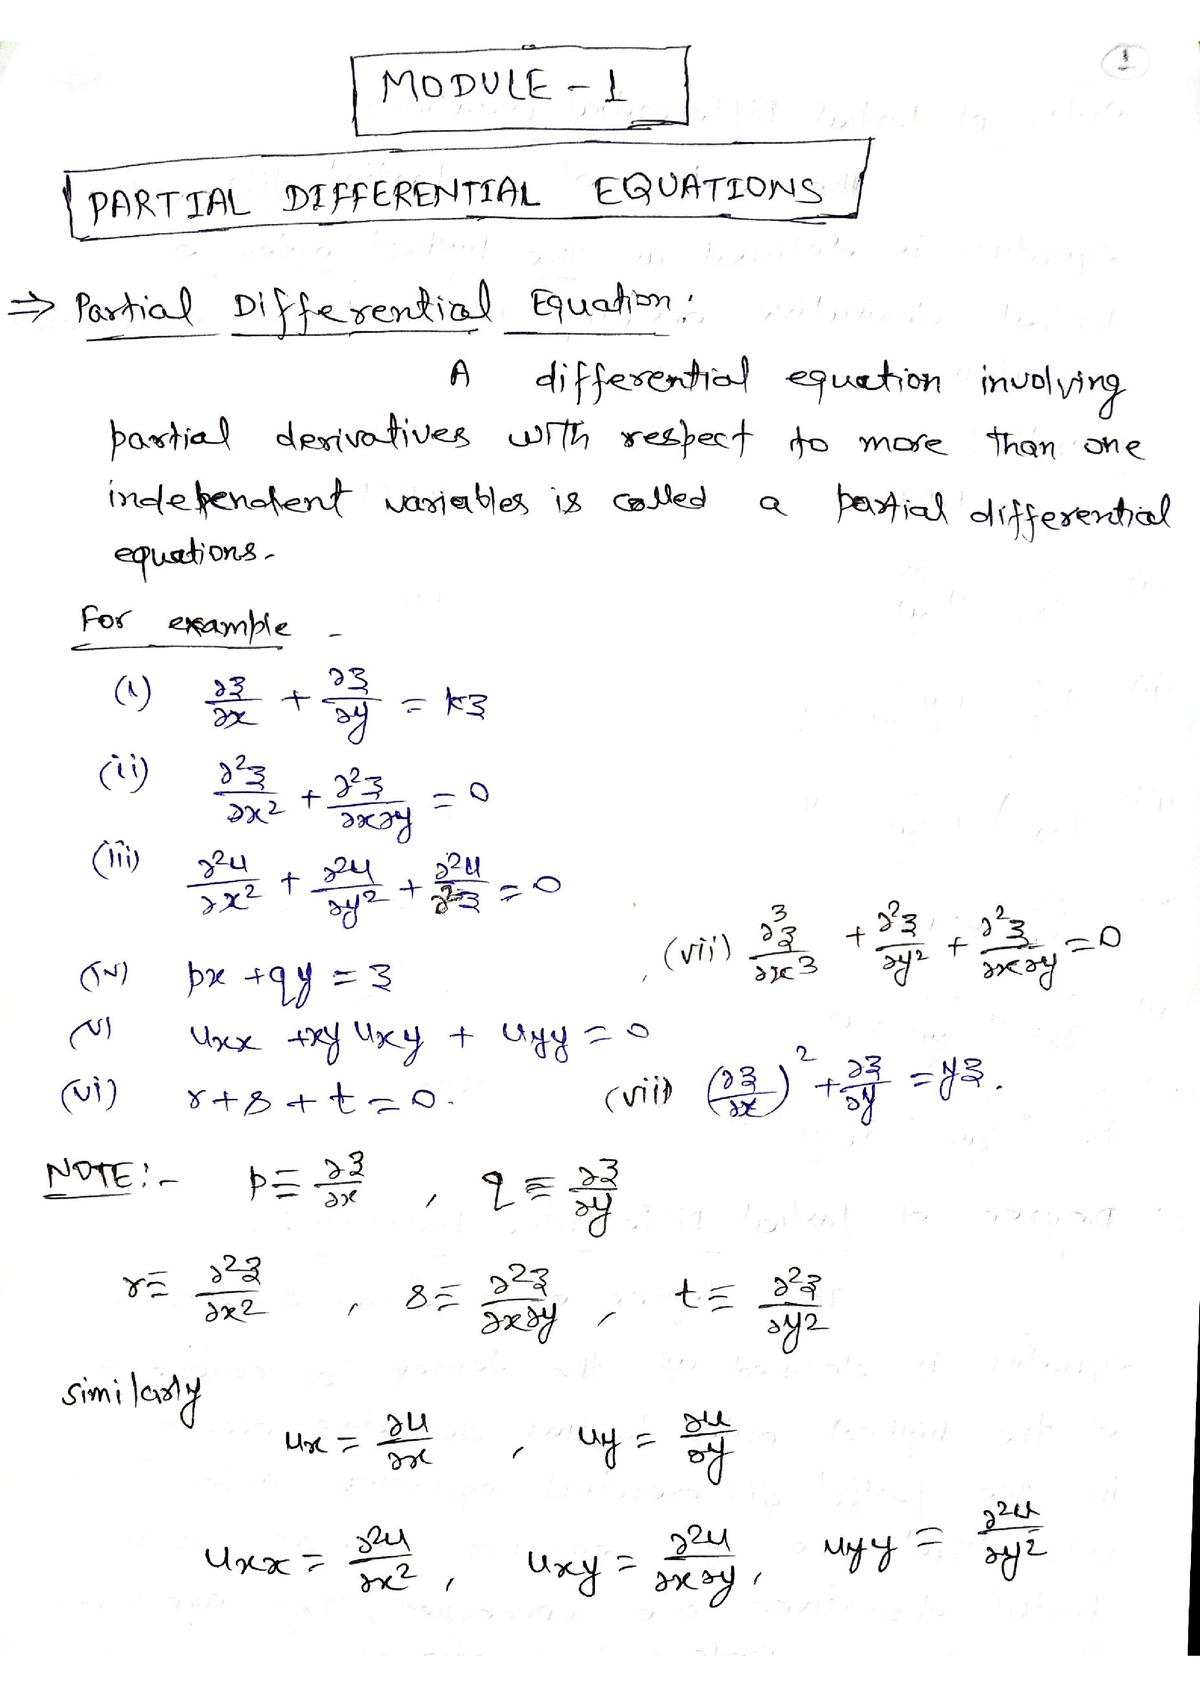 1
MODULE - 1
PARTIAL DIFFERENTIAL EQUATIONS
⇒ Partial Differential Equation:
A differential equation involving
partial derivatives with respect to more than one
independent variables is called a partial differential
equations.
For example -
(i) ∂z/∂x + ∂z/∂y = kz
(ii) ∂²z/∂x² + ∂²z/∂x∂y = 0
(iii) ∂²u/∂x² + ∂²u/∂y² + ∂²u/∂²z = 0
(iv) px + qy = z
(v) uxx + xy uxy + uyy = 0
(vi) r + s + t = 0.
(vii) ∂³z/∂x³ + ∂²z/∂y² + ∂²z/∂x∂y = 0
(viii) (∂z/∂x)² + ∂z/∂y = yz.
NOTE:- p ≡ ∂z/∂x , q ≡ ∂z/∂y
r ≡ ∂²z/∂x² , s ≡ ∂²z/∂x∂y , t ≡ ∂²z/∂y²
similarly
ux = ∂u/∂x , uy = ∂u/∂y
uxx = ∂²u/∂x² , uxy = ∂²u/∂x∂y , uyy = ∂²u/∂y²